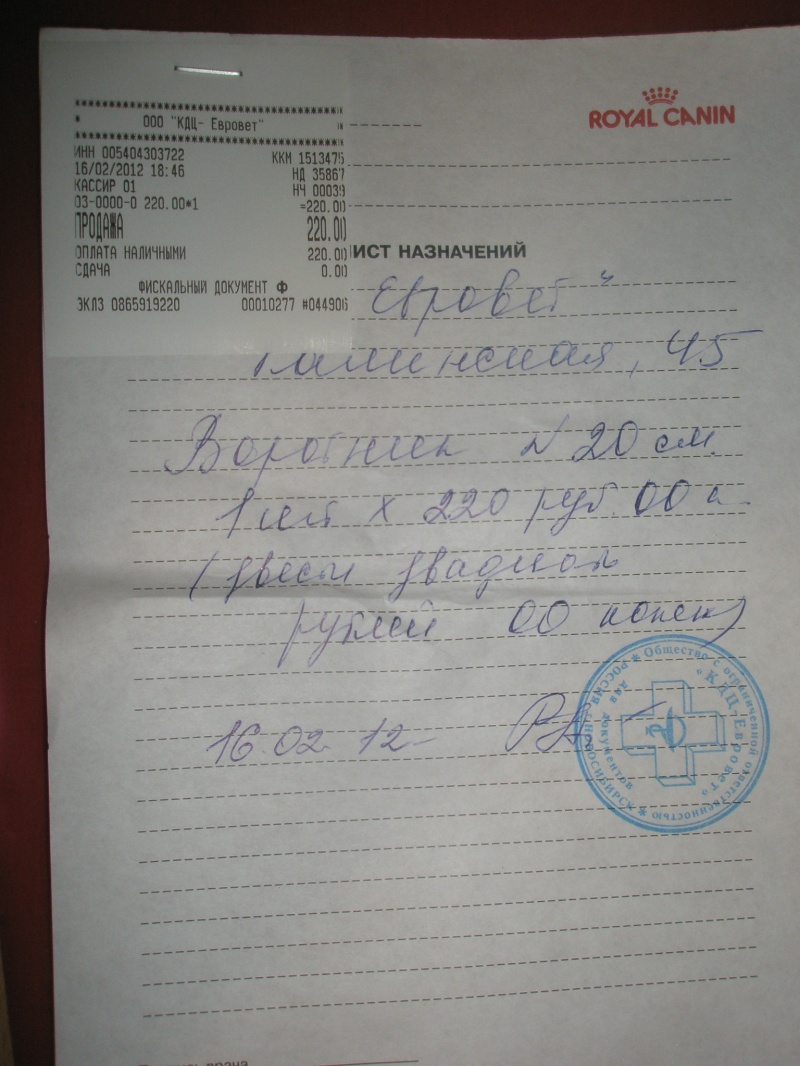 ROYAL CANIN
********************************
* ООО "КДЦ- Евровет"
********************************
ИНН 005404303722 ККМ 1513475
16/02/2012 18:46 НД 35867
КАССИР 01 НЧ 00039
03-0000-0 220.00*1 =220.00
ПРОДАЖА 220.00
ОПЛАТА НАЛИЧНЫМИ 220.00
СДАЧА 0.00
ФИСКАЛЬНЫЙ ДОКУМЕНТ Ф
ЭКЛЗ 0865919220 00010277 #044906
ИСТ НАЗНАЧЕНИЙ
Евровет"
, 45
Воротник N 20 см.
1 шт х 220 руб. 00 к
(двести двадцать
рублей 00 копеек)
16.02.12
Общество с ограниченной ответственностью
* РОССИЯ * НОВОСИБИРСК *
«КДЦ-Евровет»
для документов
врача